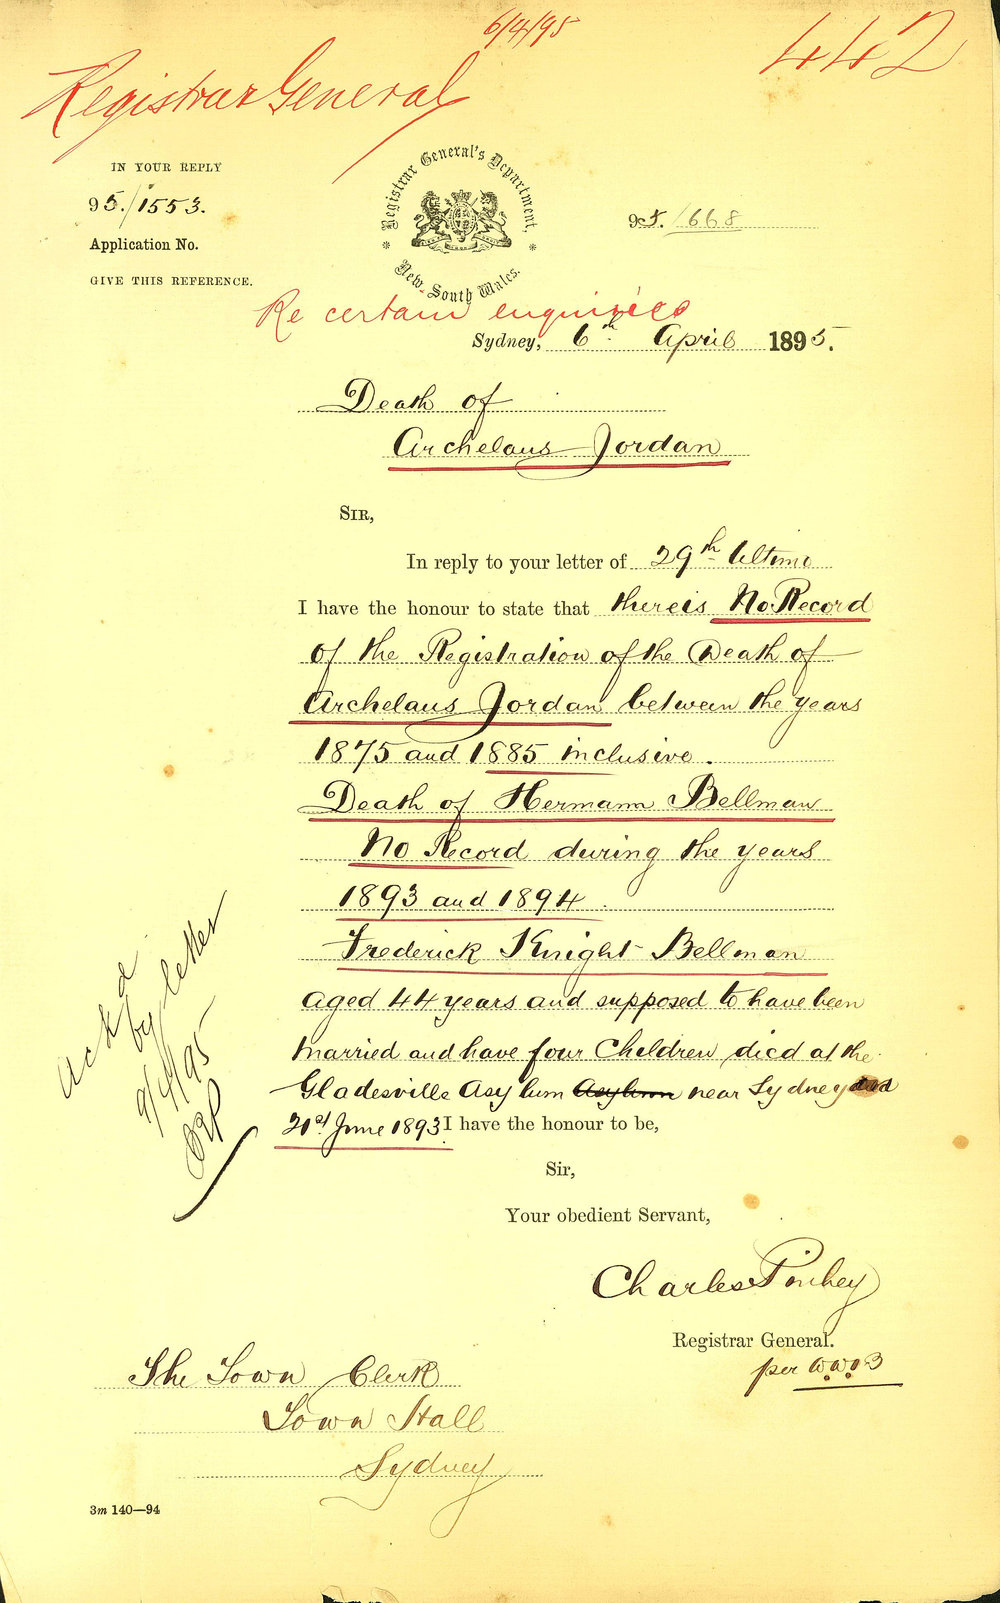 6/4/95
442
Registrar General
IN YOUR REPLY
95./1553.
Application No.
GIVE THIS REFERENCE.
Registrar General's Department,
New South Wales.
95./668
Re certain enquiries
Sydney, 6th April 1895.
Death of
Archelaus Jordan
SIR,
In reply to your letter of 29th Ultimo
I have the honour to state that there is No Record
of the Registration of the Death of
Archelaus Jordan between the years
1875 and 1885 inclusive.
Death of Hermann Bellman
No Record during the years
1893 and 1894.
Frederick Knight Bellman
aged 44 years and supposed to have been
married and have four Children died at the
Gladesville Asylum Asylum near Sydney
21st June 1893. I have the honour to be,
Sir,
Your obedient Servant,
Charles Pinhey
Registrar General.
per W.W.B
Ackd
by letter
9/4/95
The Town Clerk
Town Hall
Sydney
3m 140—94